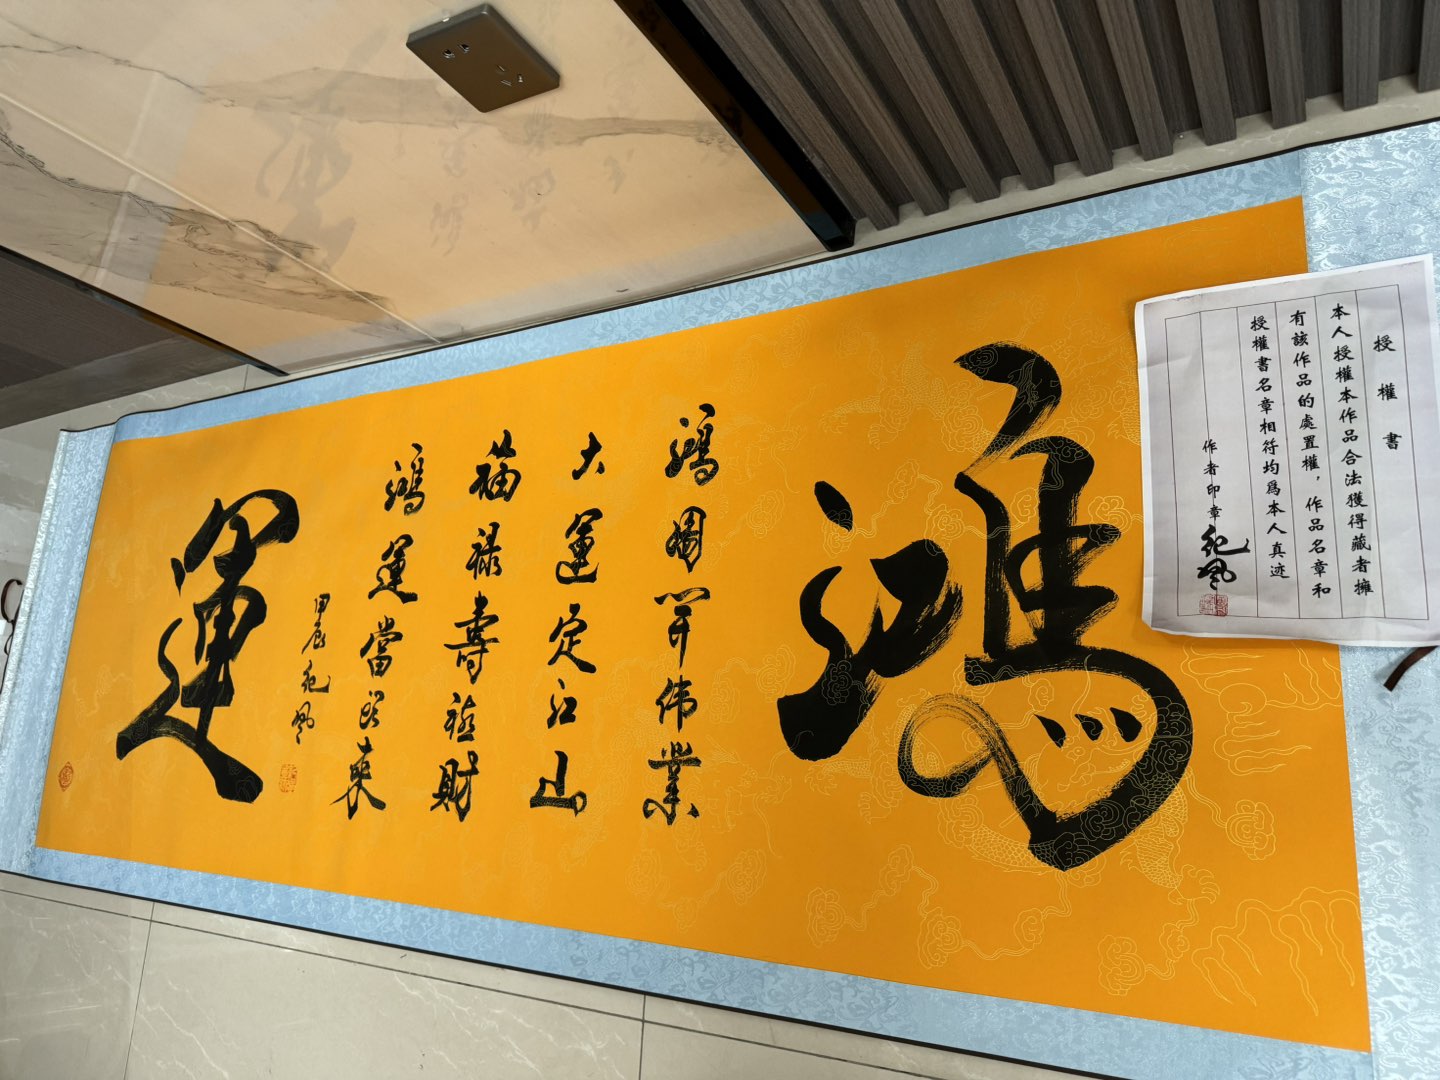 鴻
鴻圖開伟業
大運定江山
福禄壽禧財
鴻運當頭來
甲辰 紀風
運
授權書
本人授權本作品合法獲得藏者擁
有該作品的處置權，作品名章和
授權書名章相符均爲本人真迹
作者印章 紀風